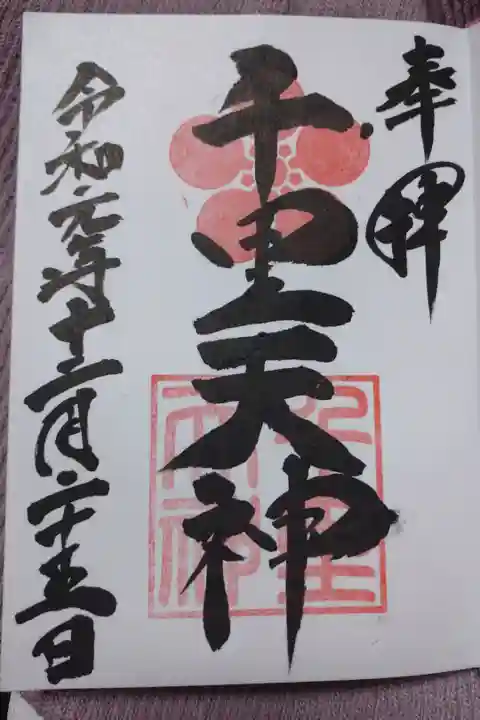 奉拝
千里天神
令和元年十二月二十五日
千里天神